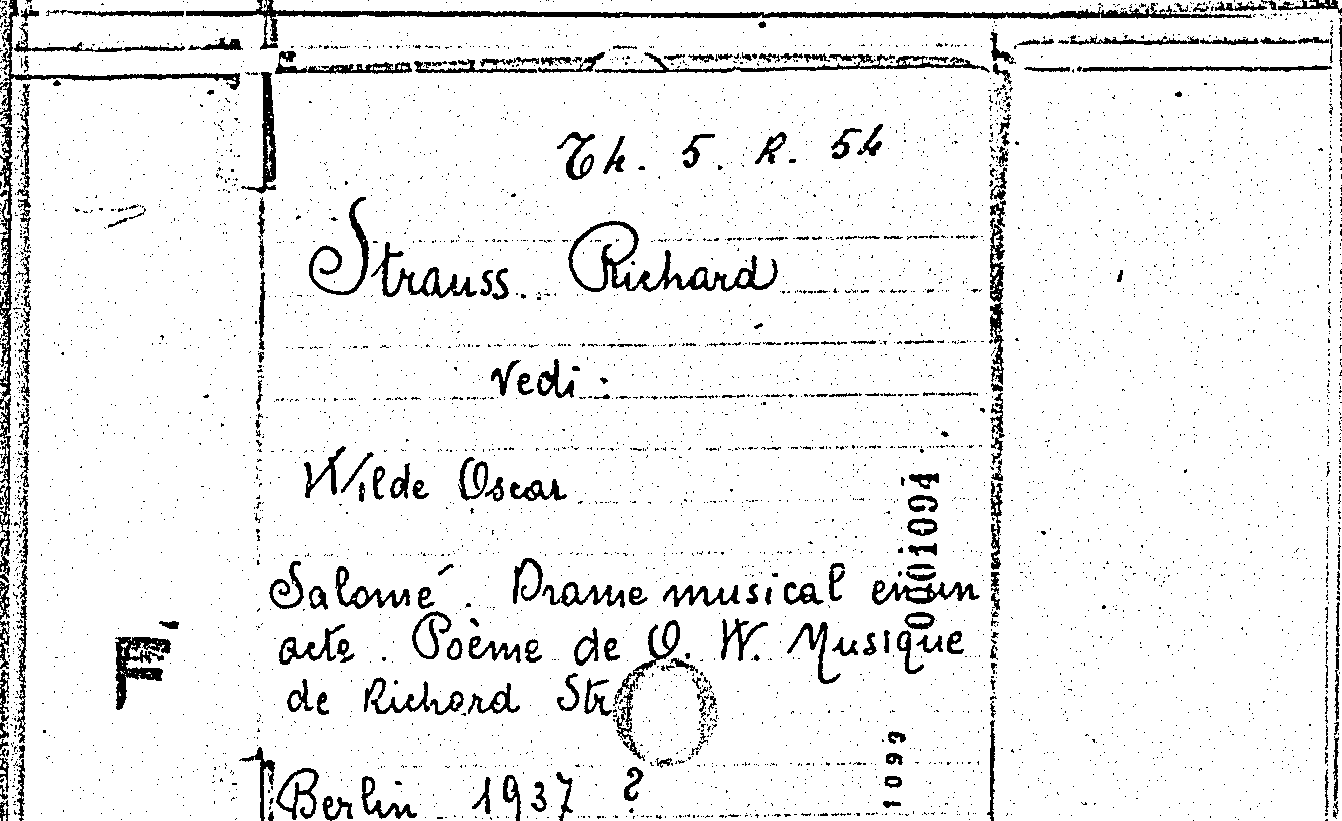 Th. 5. R. 54
Strauss Richard
Vedi:
Wilde Oscar
Salomé. Drame musical en un
acte. Poème de O. W. Musique
de Richard Str
Berlin 1937 ?
F
0001094
1099